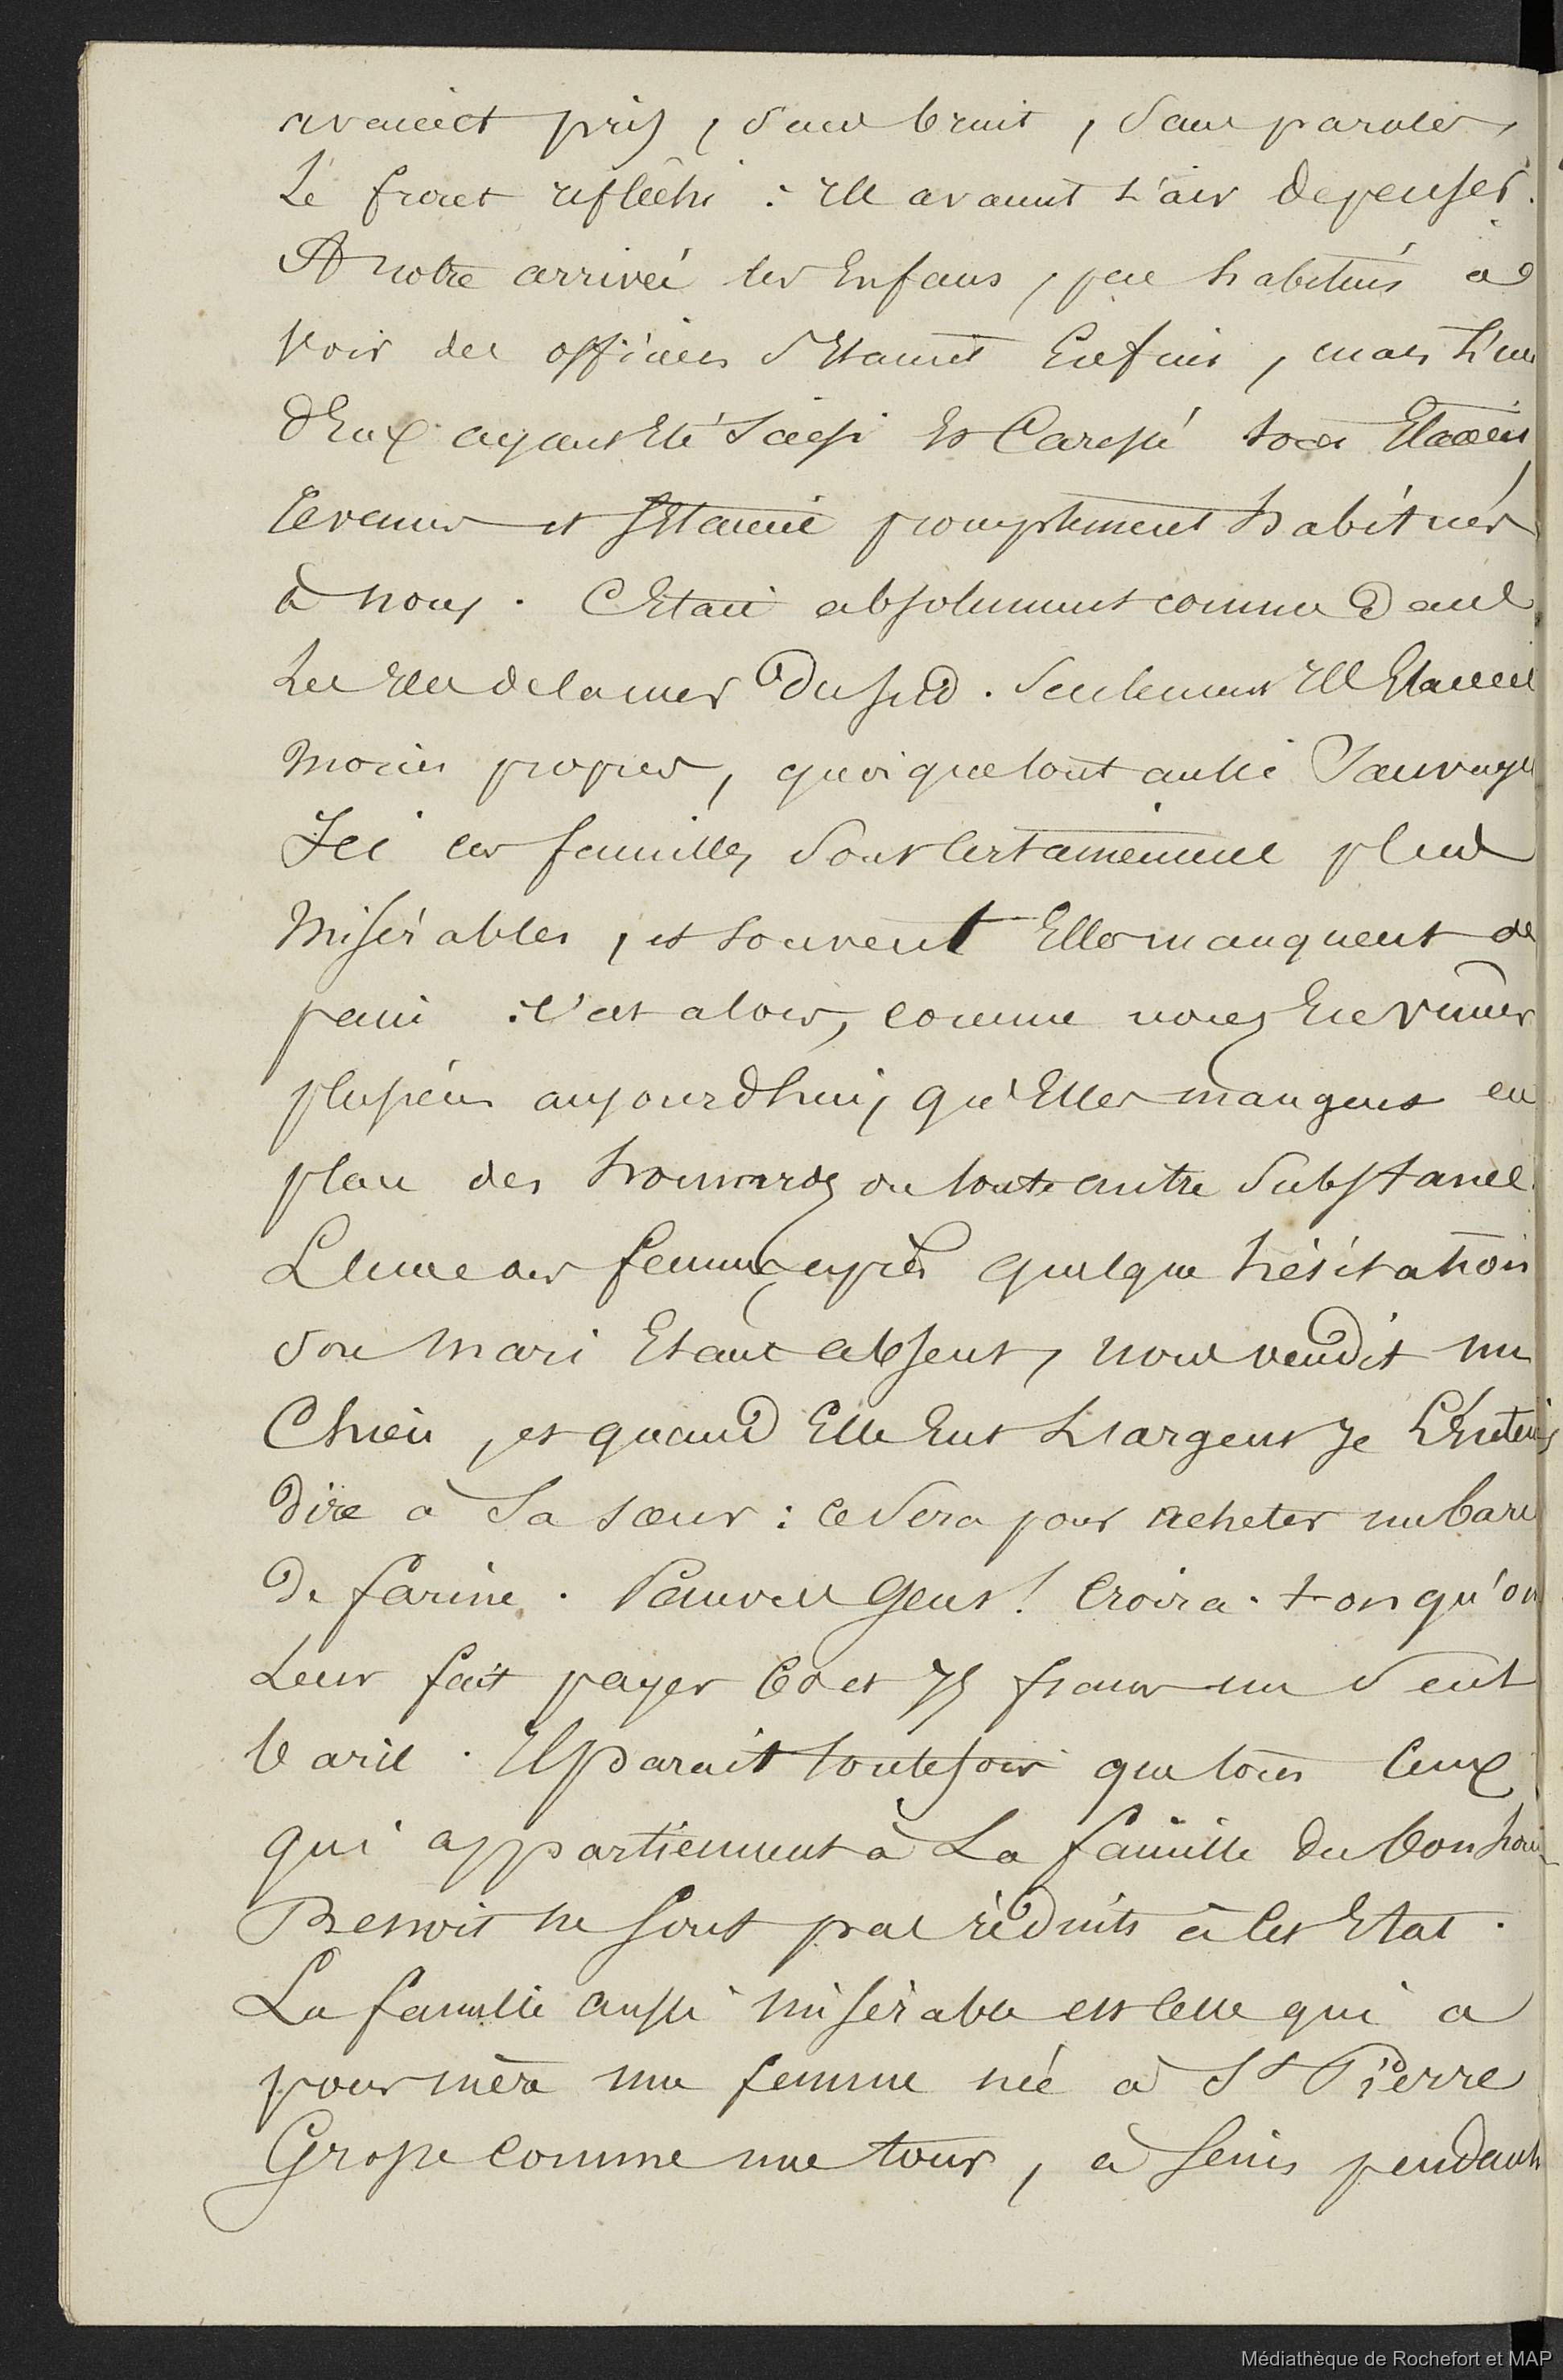 avaient pris, sans bruit, sans paroles,
Le front réfléchi : Ils avaient L'air depenser.
A notre arrivée les Enfans, peu habitués à
Voir des officiers S'Etaient Enfuis, mais L'un
d'Eux ayant Eté Saisi Et Caressé tous Etaient
revenus et S'Etaient promptement habitués
à nous. C'Etait absolument comme Dans
Les Iles de la mer Du sud. Seulement Ils Etaient
Moins propres, quoique tout aussi Sauvages
Ici les familles Sont Certainement plus
Misérables, et souvent Elles manquent de
pain : c'est alors, comme nous En vimes
plusieurs aujourd'hui, qu'Elles mangent en
place des homards ou toute autre Substance.
L'une des femmes, après quelque hésitation
Son Mari Etant absent, nous vendit un
Chien, et quand Elle Eut L'argent Je L'Entendis
Dire à Sa sœur : Ce Sera pour acheter un baril
De farine. Pauvres Gens ! Croira-t-on qu'on
Leur fait payer 60 et 75 francs un Seul
baril. Il parait toutefois que tous Ceux
qui appartiennent à La famille du bonhom-
Benoit ne sont pas réduits à Cet Etat.
La famille aussi misérable est Celle qui a
pour mère une femme née à St Pierre
Grosse comme une tour, à seins pendants